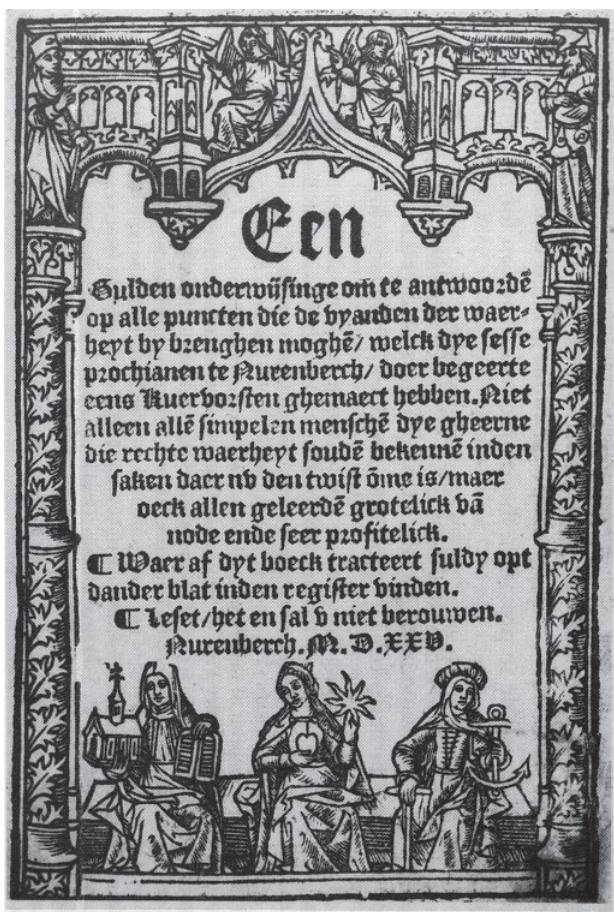 Een
Gulden onderwijsinge om̄ te antwoordē
op alle puncten die de vyanden der waer⸗
heyt by brenghen moghē/ welck dye sesse
prochianen te Nurenberch/ doer begeerte
eens Kuervorsten ghemaect hebben. Niet
alleen allē simpelen menschē dye gheerne
die rechte waerheyt soudē bekennē inden
saken daer nv den twist ōme is/maer
oeck allen geleerdē grotelick vā
node ende seer profitelick.
¶ Waer af dyt boeck tracteert suldy opt
dander blat inden register vinden.
¶ Leset/het en sal v niet berouwen.
Nurenberch. M. D. XXV.